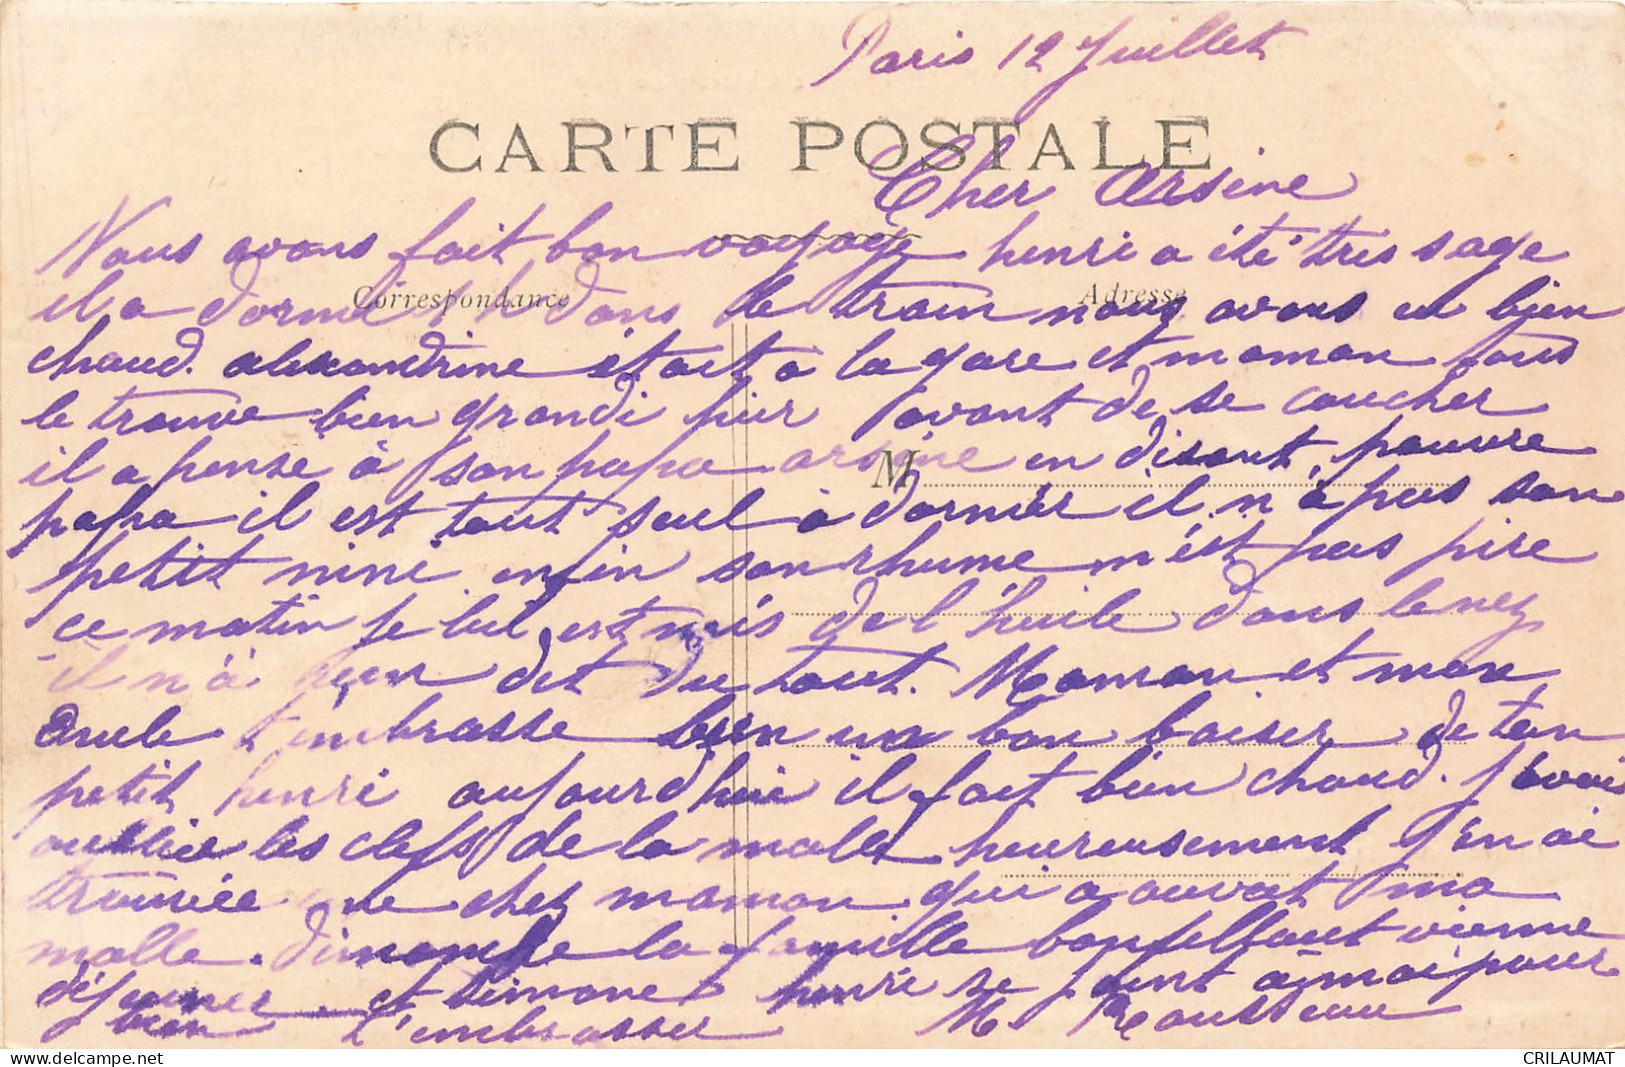 Paris 12 Juillet
CARTE POSTALE
Cher Arsène
Nous avons fait bon voyage henri a été très sage
Correspondance
Adresse
il a dormi dans le train nous avons eu bien
chaud. alexandrine était a la gare et maman tous
le trouve bien grandi hier avant de se coucher
il a pensé à son papa arsène en disant, pauvre
M
papa il est tout seul a dormir il n'a pas son
petit nini enfin son rhume n'est pas pire
ce matin je lui est mis de l'huile dans le nez
il n'a rien dit du tout. Maman et mon
oncle t'embrasse bien un bon baiser de ton
petit henri aujourd'hui il fait bien chaud. J'avai
oubliée les clefs de la malle heureusement j'en ai
trouvée une chez maman qui a ouvert ma
malle. dimanche la famille vienne
déjeuner. et Simone henri se joint à moi pour
bien t'embrasser M. Rousseau
CRILAUMAT